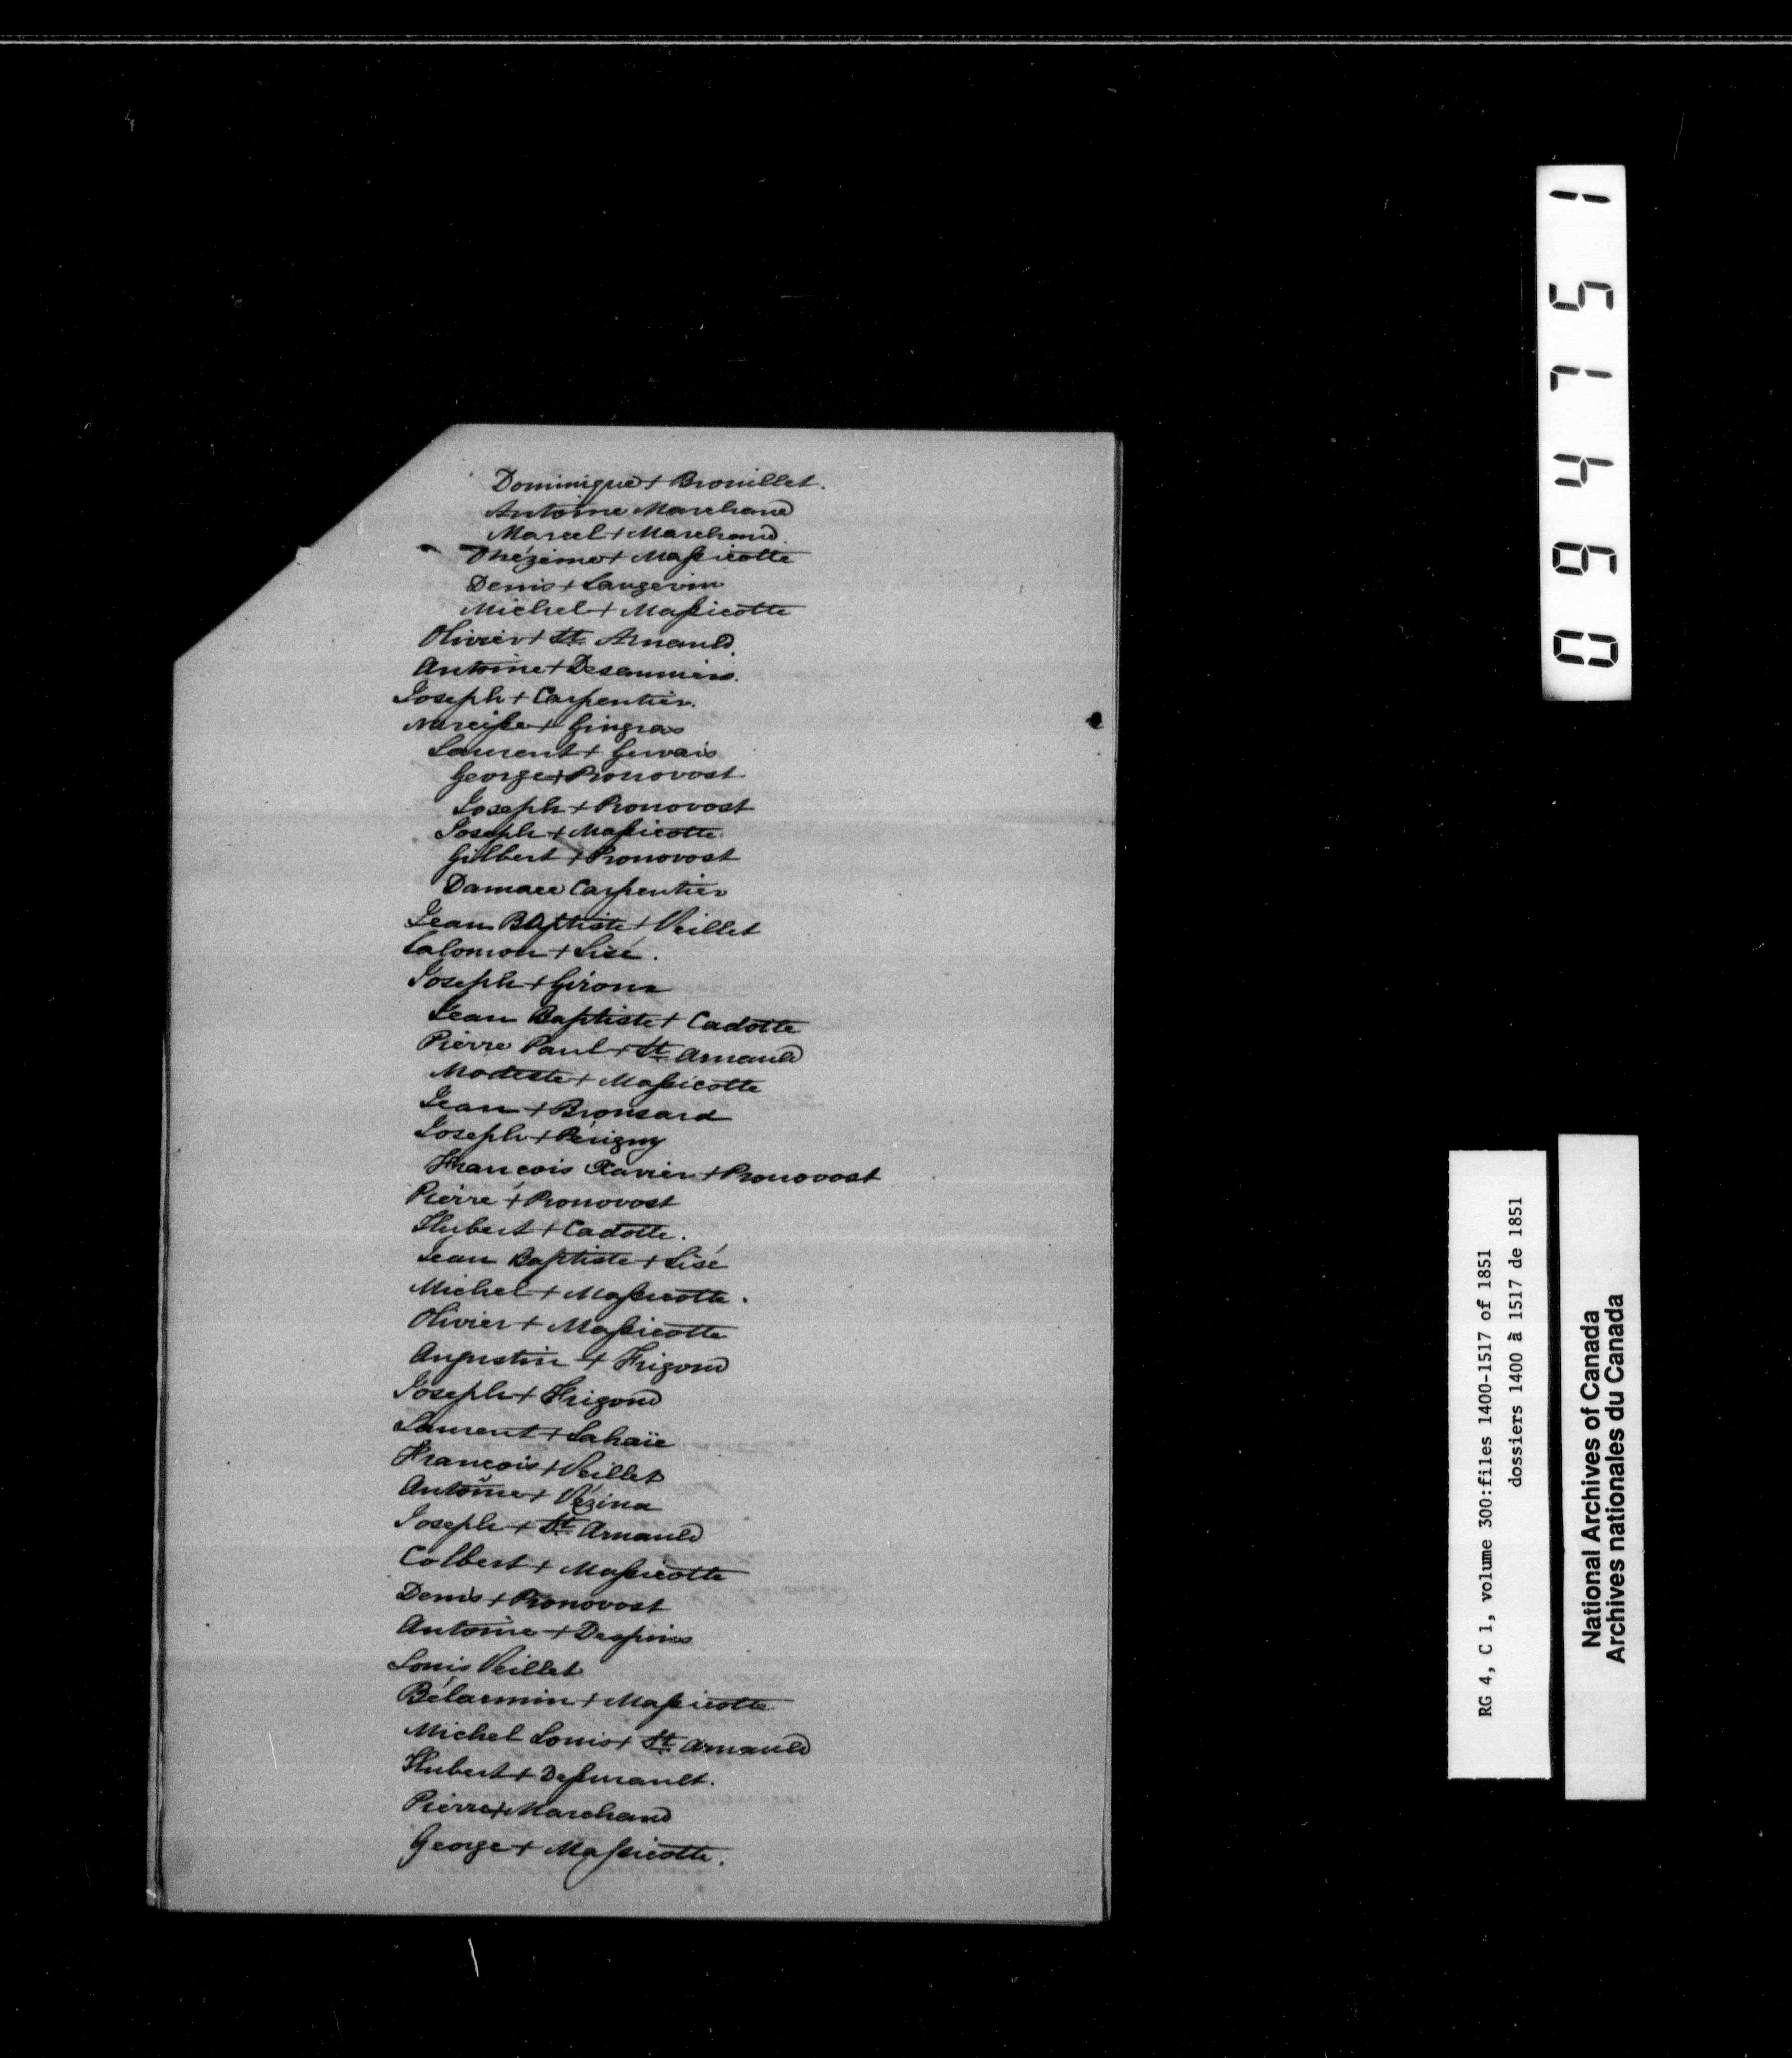 Dominique + Brouillet.
Antoine Marchand
Marcel + Marchand.
Onézime + Massicotte
Denis + Langevin
Michel + Massicotte
Olivier + St. Arnauld.
Antoine + Desaumiers.
Joseph + Carpentier.
Narcisse + Gingras
Laurent + Gervais
George + Pronovost
Joseph + Pronovost
Joseph + Massicotte
Gilbert + Pronovost
Damace Carpentier
Jean Baptiste + Veillet
Salomon + Lisé.
Joseph + Giroux
Jean Baptiste + Cadotte
Pierre Paul + St. Arnauld
Modeste + Massicotte
Jean + Bronsard
Joseph + Périgny
François Xavier + Pronovost
Pierre + Pronovost
Hubert + Cadotte.
Jean Baptiste + Lisé
Michel + Massicotte.
Olivier + Massicotte
Augustin + Frigond
Joseph + Frigond
Laurent + Lahaïe
François + Veillet
Antoine + Vézina
Joseph + St. Arnauld
Colbert + Massicotte
Denis + Pronovost
Antoine + Despins
Louis Veillet
Bélarmin + Massicotte
Michel Louis + St. Arnauld
Hubert +
Pierre + Marchand
George + Massicotte.
094751
RG 4, C 1, volume 300:files 1400-1517 of 1851
dossiers 1400 à 1517 de 1851
National Archives of Canada
Archives nationales du Canada